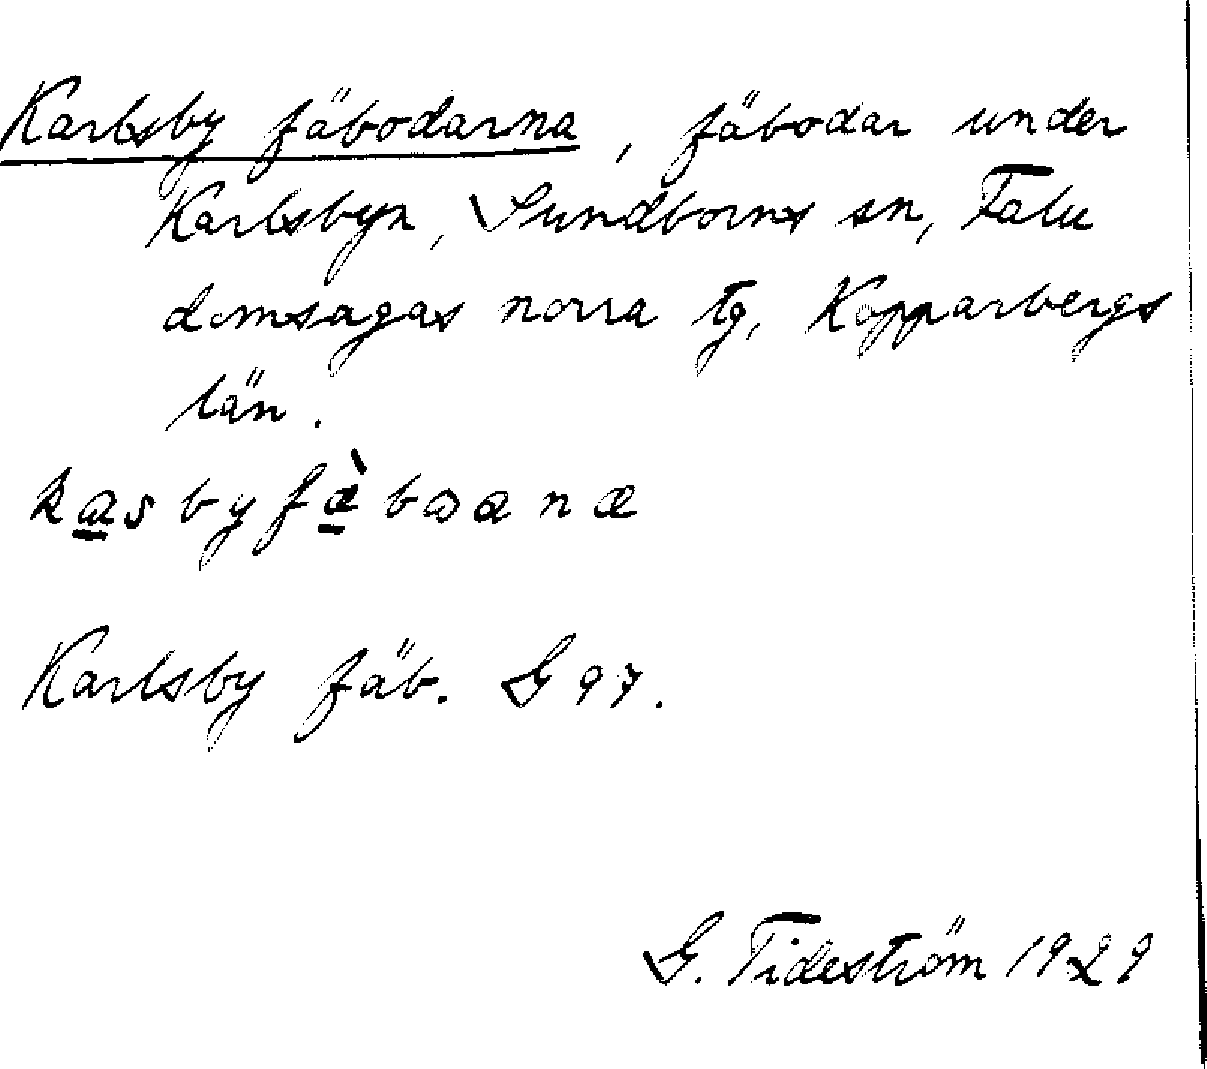 Karlsby fäbodarna, fäbodar under
Karlsbyn, Sundborns sn, Falu
domsagas norra tg, Kopparbergs
län.
kasbyfæ̀bωana
Karlsby fäb. G 97.
G. Tideström 1929